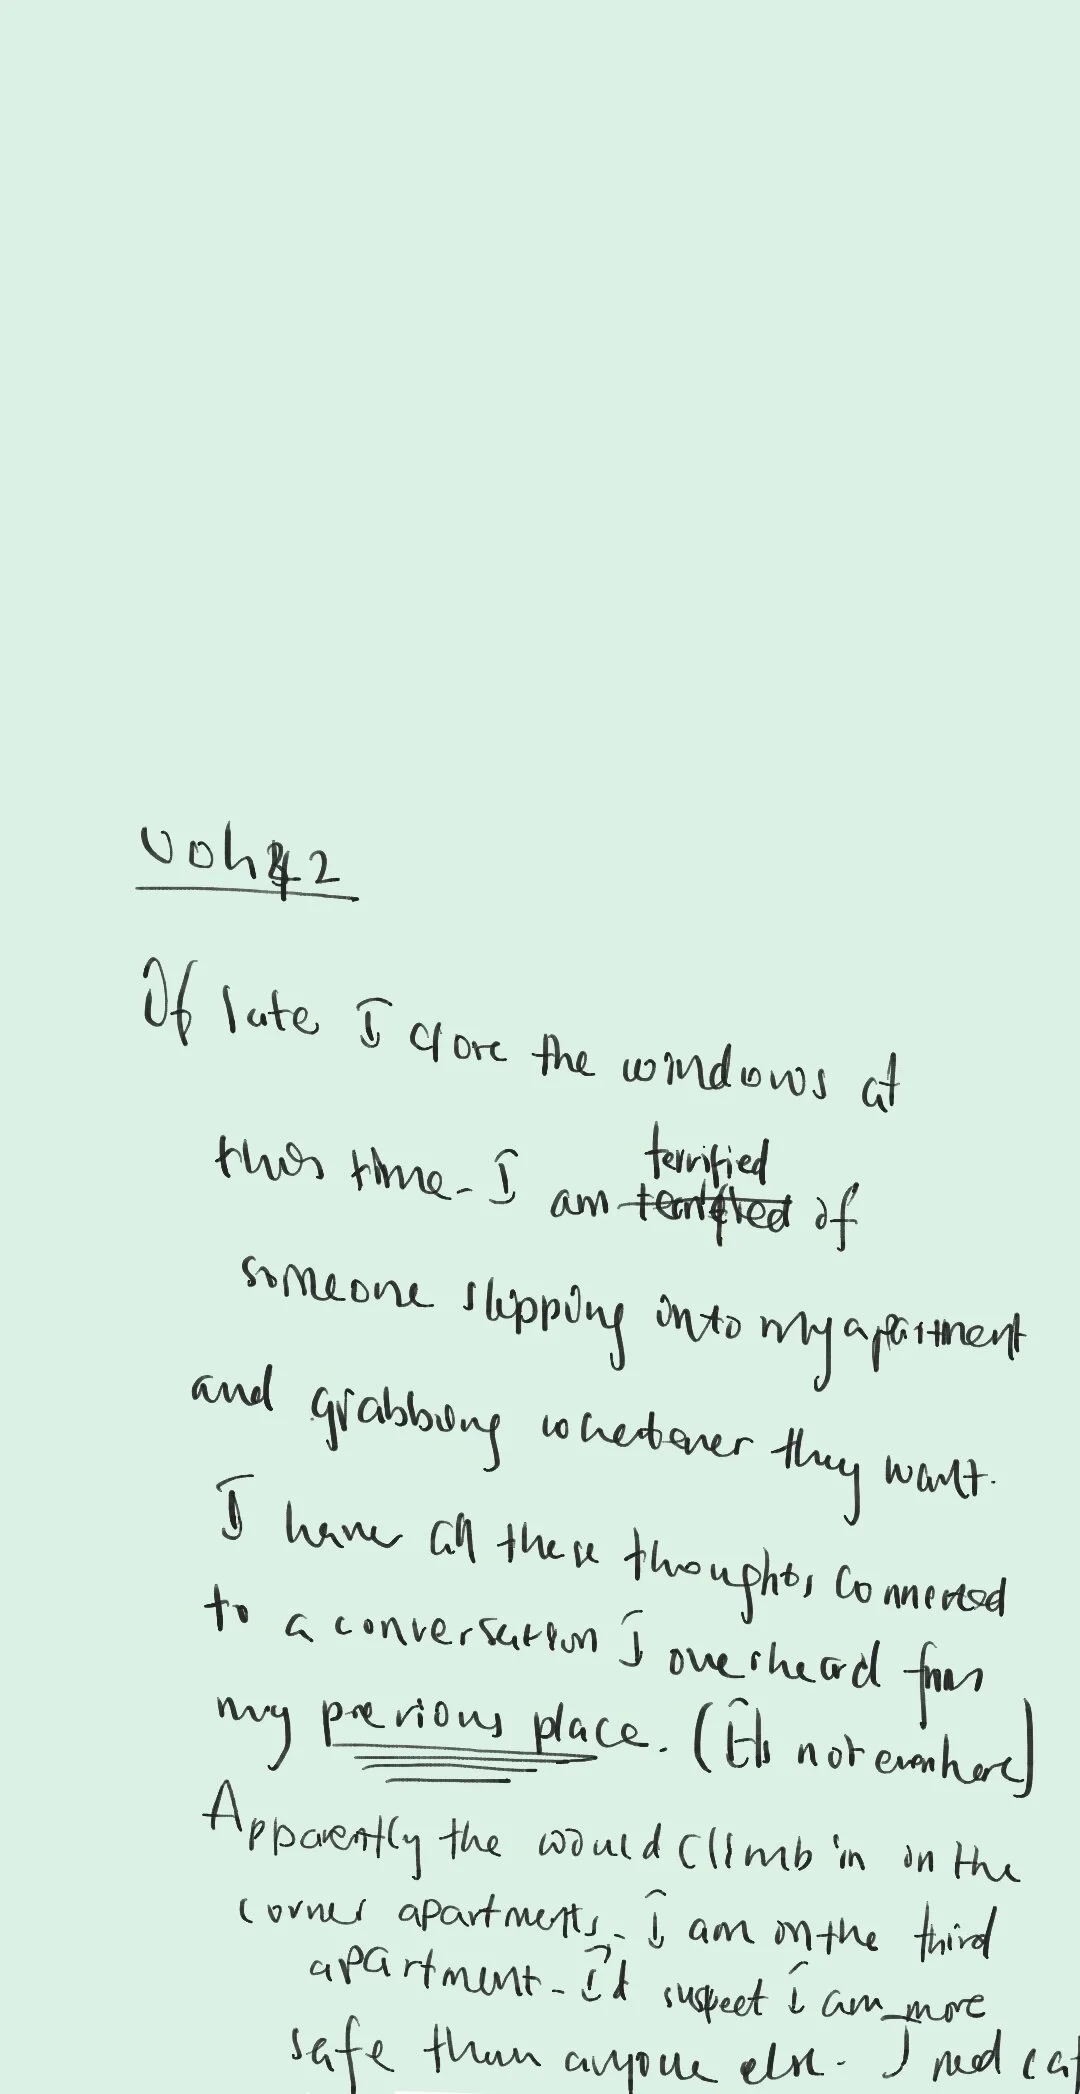 00h42
Of late I close the windows at
this time. I am terrified of
someone slipping into my apartment
and grabbing whatever they want.
I have all these thoughts connected
to a conversation I overheard from
my previous place. (It's not even here)
Apparently the would climb in in the
corner apartments. I am on the third
apartment. I'd suspect i am more
safe than anyone else. I need